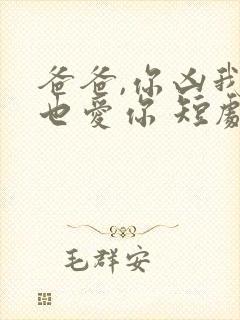 爸爸,你凶我
也愛你 短劇
毛群安